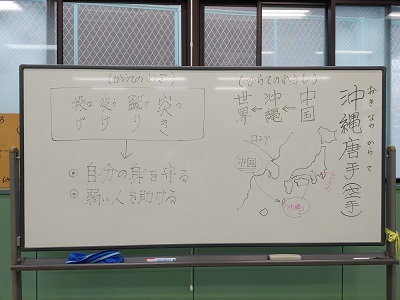 おきなわ からて
沖縄唐手(空手)
(からてのれきし)
中国
←
沖縄
←
世界
ロシア
中国
沖縄
(からてのわざ)
突き
蹴り
受け
投げ
自分の身を守る
弱い人を助ける